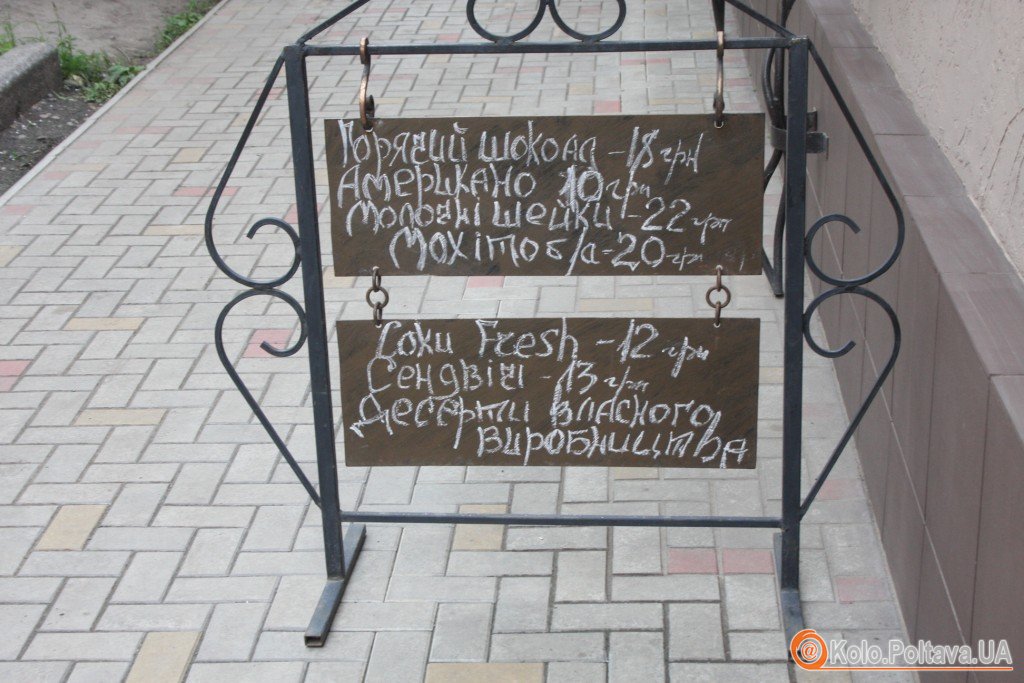 Гарячий шоколад - 18 грн
Американо 10 грн
Молочні шейки - 22 грн
Мохіто б/а - 20 грн
Соки Fresh - 12 грн
Сендвічі - 13 грн
Десерти власного
виробництва
@ Kolo.Poltava.UA